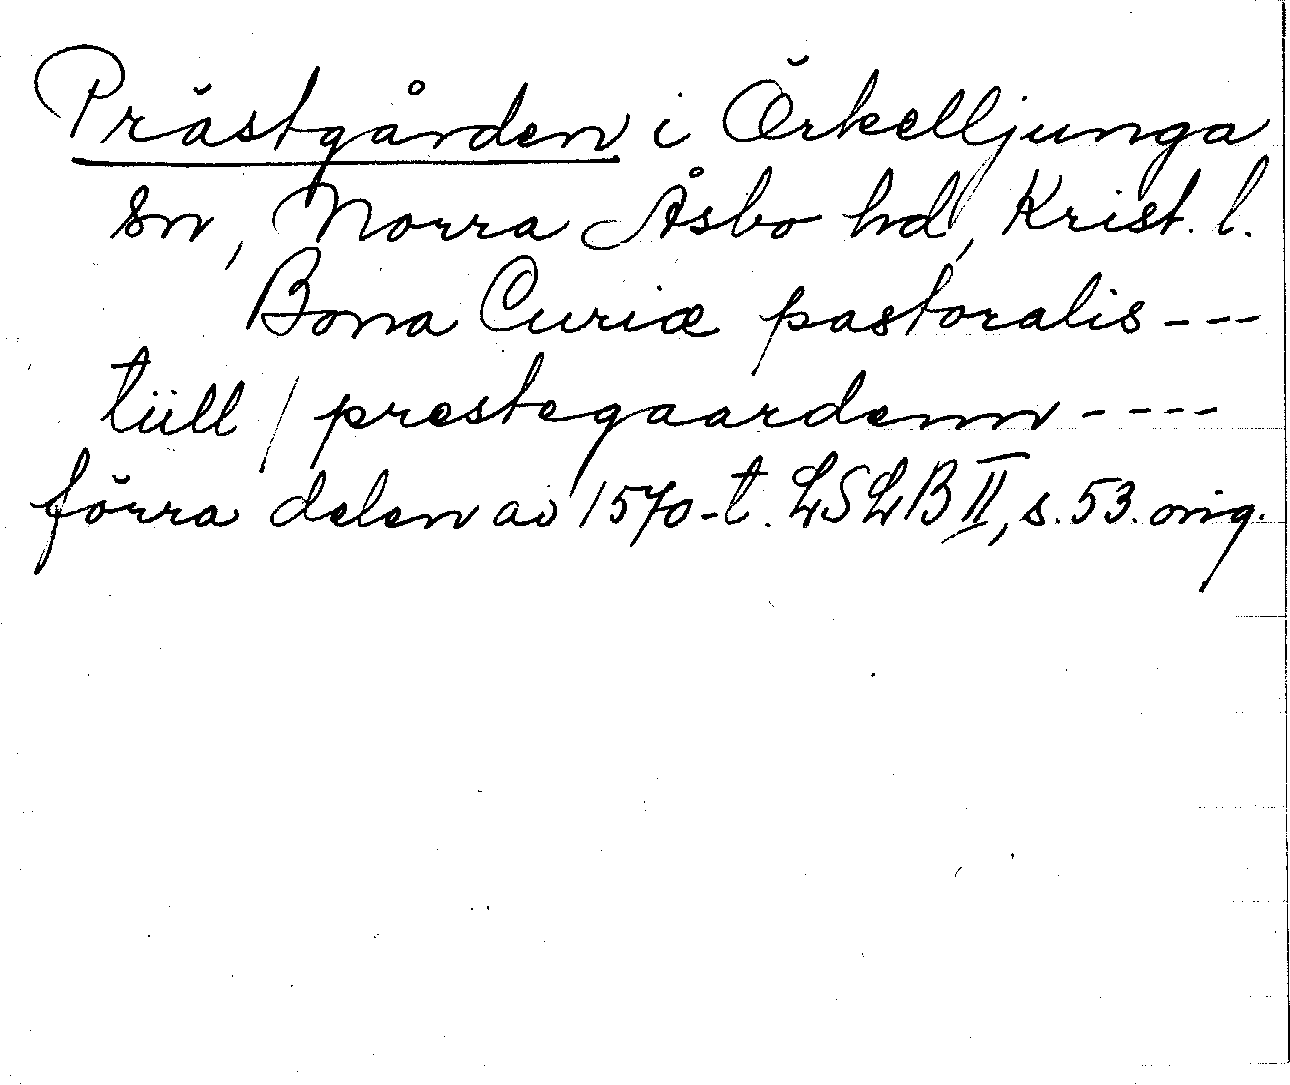 Prästgården i Örkelljunga
sn, Norra Åsbo hd, Krist. l.
Bona Curiæ pastoralis ---
tüll / prestegaardenn ----
förra delen av 1570-t. LSLB II, s. 53. orig.